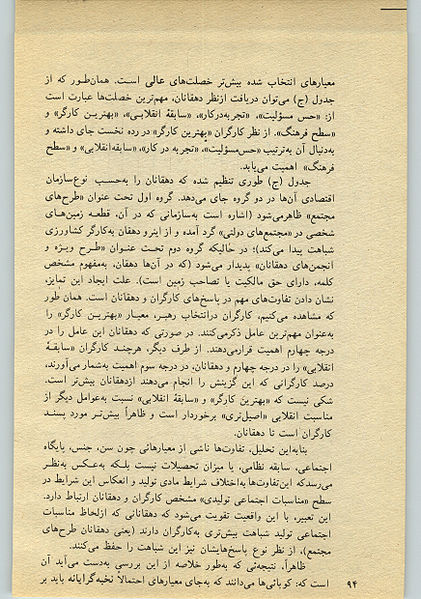 معیارهای انتخاب شده بیش‌تر خصلت‌های عالی است. همان‌طور که از
جدول (ج) می‌توان دریافت ازنظر دهقانان، مهم‌ترین خصلت‌ها عبارت است
از: «حس مسؤلیت»، «تجربه‌درکار»، «سابقهٔ انقلابـی»، «بهتریـن کارگر» و
«سطح فرهنگ». از نظر کارگران «بهترین کارگر» در رده نخست جای داشته و
به‌دنبال آن به‌ترتیب «حس‌مسؤلیت»، «تجربه در کار»، «سابقه‌انقلابی» و «سطح
فرهنگ» اهمیت می‌یابد.
جدول (ج) طوری تنظیم شده که دهقانان را به‌حسب نوع‌سازمان
اقتصادی آن‌ها در دو گروه جای می‌دهد. گروه اول تحت عنوان «طرح‌های
مجتمع» ظاهرمی‌شود (اشاره است به‌سازمانی که در آن، قطعـه زمین‌هـای
شخصی در «مجتمع‌های دولتی» گرد آمده و از اینرو دهقان به‌کارگر کشاورزی
شباهت پیدا می‌کند)؛ در حالیکه گروه دوم تحت عنـوان «طـرح ویـژه و
انجمن‌های دهقانان» پدیدار می‌شود (که در آن‌ها دهقان، به‌مفهوم مشخص
کلمه، دارای حق مالکیت یا تصاحب زمین است). علت ایجاد این تمایز،
نشان دادن تفاوت‌های مهم در پاسخ‌های کارگران و دهقانان است. همان طور
که مشاهده می‌کنیم، کارگران درانتخاب رهبـر، معیـار «بهتریـن کارگر» را
به‌عنوان مهم‌ترین عامل ذکرمی‌کنند. در صورتی که دهقانان این عامل را در
درجه چهارم اهمیت قرارمی‌دهند. از طرف دیگر، هرچنـد کارگران «سابقـهٔ
انقلابی» را در درجه چهارم و دهقانان، در درجه سوم اهمیت به‌شمار‌می‌آورند،
درصد کارگرانی که این گزینش را انجام می‌دهند ازدهقانان بیش‌تر است.
شکی نیست که «بهترین کارگر» و «سابقهٔ انقلابی» نسبت به‌عوامل دیگر از
مناسبت انقلابی «اصیل‌تری» برخوردار است و ظاهراً بیش‌تـر مورد پسنـد
کارگران است تا دهقانان.
بنابه‌این تحلیل، تفاوت‌ها ناشی از معیارهائی چون سن، جنس، پایگاه
اجتماعی، سابقه نظامی، یا میزان تحصیلات نیست بلـکه به‌عکس به‌نظـر
می‌رسدکه این‌تفاوت‌ها به‌اختلاف شرایط مادی تولید و انعکاس این شرایط در
سطح «مناسبات اجتماعی تولیدی» مشخص کارگران و دهقانان ارتباط دارد.
این تعبیر، با این واقعیت تقویت می‌شود که دهقانانی که ازلحاظ مناسبات
اجتماعی تولید شباهت بیش‌تری به‌کارگران دارند (یعنی دهقانان طرح‌های
مجتمع)، از نظر نوع پاسخ‌هایشان نیز این شباهت را حفظ می‌کنند.
ظاهراً، نتیجه‌ئی که به‌طور خلاصه از این بررسی به‌دست می‌آید آن
است که: کوبائی‌ها می‌دانند که به‌جای معیارهای احتمالا نخبه‌گرایانه باید بر
۹۴